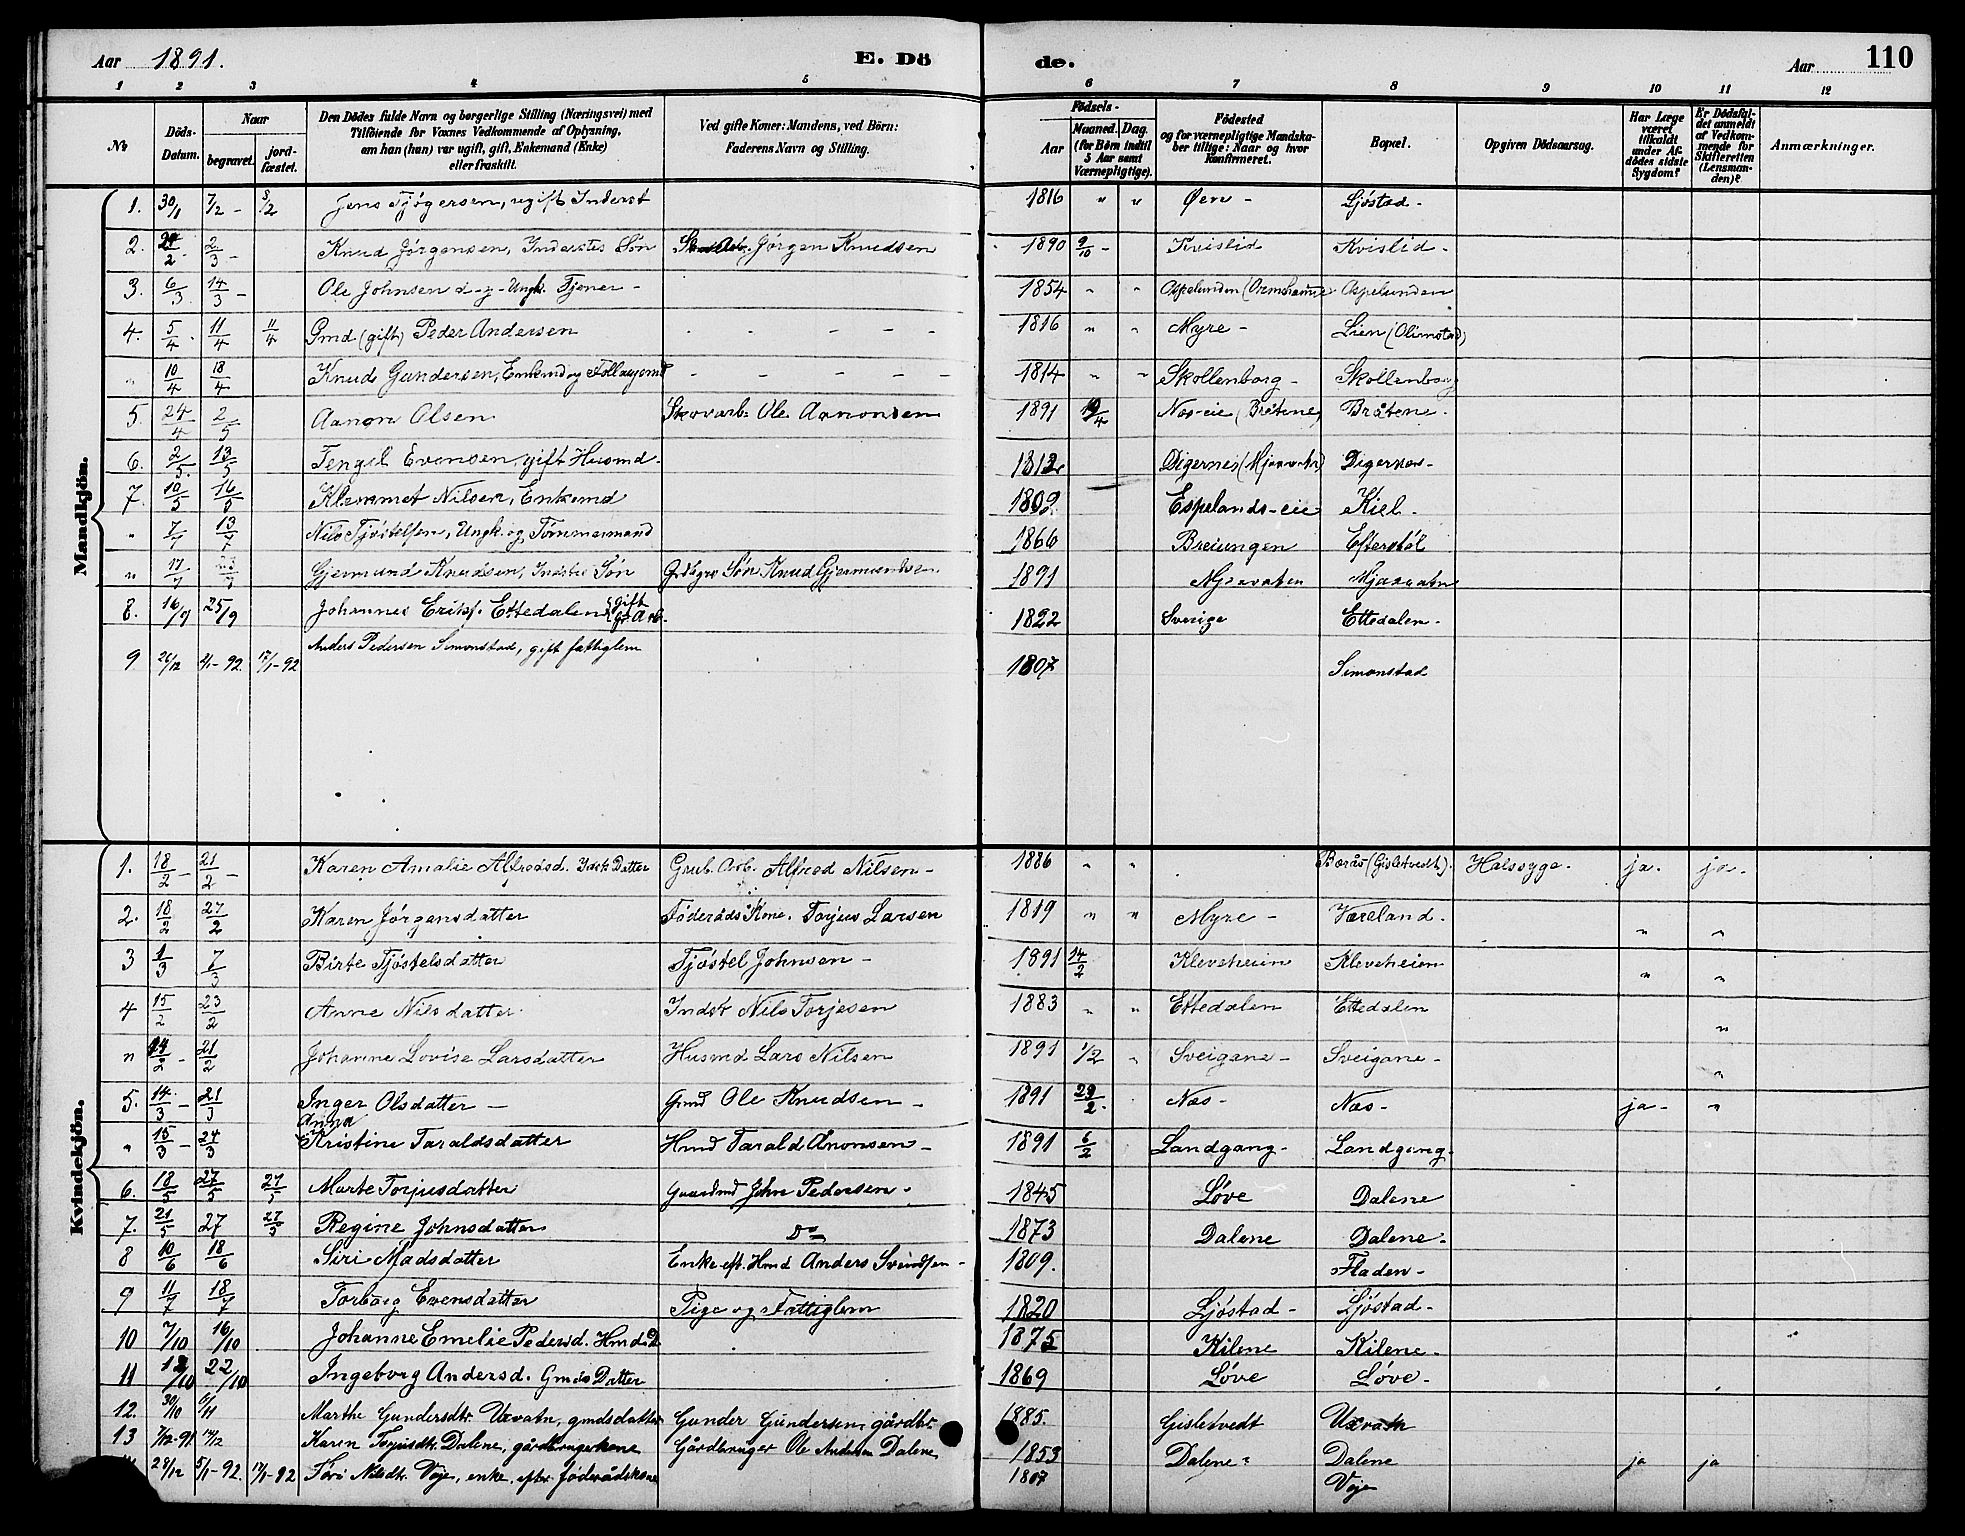 Aar 1891. E. Dö de. Aar 110
1 2 3 4 5 6 7 8 9 10 11 12
No Döds-Datum. Naar begravet. jord-fæstet. Den Dödes fulde Navn og borgerlige Stilling (Næringsvei) med Tilföiende for Voxnes Vedkommende af Oplysning, om han (hun) var ugift, gift, Enkemand (Enke) eller fraskilt. Ved gifte Koner: Mandens, ved Börn: Faderens Navn og Stilling. Födsels- Aar Maaned. Dag. (for Börn indtil 5 Aar samt Værnepligtige). Födested og for værnepligtige Mandska-ber tillige: Naar og hvor Konfirmeret. Bopæl. Opgiven Dödsaarsag. Har Læge været tilkaldt under Af-dödes sidste Sygdom? Er Dödsfal-det anmeldt af Vedkom-mende for Skifteretten (Lensman-den)? Anmærkninger.
Mandkjön.
1. 30/1 7/2 - 8/2 Jens Tjøgersen, ugift Inderst 1816 " " Øen - Ljøstad -
2. 2/3 - Knud Jørgensen, Inderstes Søn Jørgen Knudsen 1890 9/10 - Kvislid Kvislid -
3. 6/3 14/3 - Ole Johnsen Ungk. Tjener - 1854 " " Aspelunden Aspelunden
4. 5/4 11/4 11/4 Gmd (gift) Peder Andersen - - - - 1816 " " Myre - Lien (Olimstad)
" 10/4 18/4 Knud Gundersen, Enkemd og - - - - 1814 " " Skollenborg - Skollenborg
5. 24/4 2/5 Aanon Olsen Skovarb. Ole Aanonsen 1891 19/4 Næs-eie (Bråtene) Bråtene -
6. 2/5 13/5 Tengel Evensen, gift Husmd - 1812 Digernes (Mjaavatn) Digernes -
7. 10/5 16/5 Klemmet Nilsen, Enkemd 1809 Espelands-eie Kiel -
" 7/7 13/7 Nils Tjøstelsen, Ungk. og Tømmermand 1866 Breiungen Efterstøl
" 17/7 Gjermund Knudsen, Indstes Søn Søn Knud Gjermundsen 1891 Mjaavaten Mjaavatn
8. 16/9 25/9 Johannes Eriks. Ettedalen gift 1822 Sverige Ettedalen -
9 26/12 2/1-92. 17/1-92 Anders Pedersen Simonstad, gift fattiglem 1807 Simonstad
Kvindekjön.
1. 18/2 - 21/2 - Karen Amalie Alfredsd. Indsts Datter Grub. Arb. Alfred Nilsen - 1886 " " Borås (Gisletvedt). Halssyge. ja. ja.
2. 18/2 27/2 Karen Jørgensdatter Føderåds Kone. Torjus Larsen 1819 " " Myre - Væreland - " "
3 1/3 7/3 Birte Tjøstelsdatter Tjøstel Johnsen - 1891 14/2 Kleveheien Kleveheien " "
4 15/2 23/2 Anne Nilsdatter. Indst Nils Torjesen 1883 " " Ettedalen Ettedalen "
" 14/2 - 21/2 Johanne Lovise Larsdatter Husmd Lars Nilsen 1891 1/2 " Sveigane - Sveigane - "
5. 14/3 - 21/3 Inger Olsdatter - Gmd Ole Knudsen - 1891 23/2 - Næs - Næs - ja - "
" 15/3 - 24/3 Anna Kristine Taraldsdatter Hmd Tarald Anonsen - 1891 6/2 Landgang - Landgang -
6. 18/5 27/5 27/5 Marte Torjusdatter Gaardmd John Pedersen - 1845 Løve Dalene
7. 21/5 27 27/5 Regine Johnsdatter Do 1873 Dalene Dalene -
8 10/6 18/6 Siri Madsdatter Enke eft. Hmd Anders Svendsen - 1809. Fladen -
9 11/7 18/7 Torborg Evensdatter Pige og Fattiglem 1820 Ljøstad - Ljøstad -
10 7/10 16/10 Johanne Emelie Pedersd. Hmds D 1875 Kilene Kilene -
11 12/10 22/10 Ingeborg Andersd. Gmds Datter 1869 Løve Løve -
12. 30/10 6/11 Marthe Gundersdtr. Uxvatn, gmdsdatter Gunder Gundersen, gårdbr. 1885. Gisletvedt Uxvatn
13 7/12-91 14/12 Karen Torjusdtr. Dalene, gårdbrugerkone Gårdbruger Ole Andersen Dalene 1853 Dalene Dalene
29/12 5/1-92. 17/1-92 Siri Nilsdtr. Voje, enke, efter føderådskone 1807 Voje ja ja